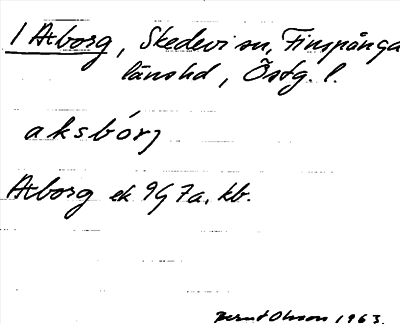 1 Axborg, Skedevi sn, Finspånga
länshd, Östg. l.
aksbórj
Axborg ek 9G 7a, kb.
Bernt Olsson 1963.